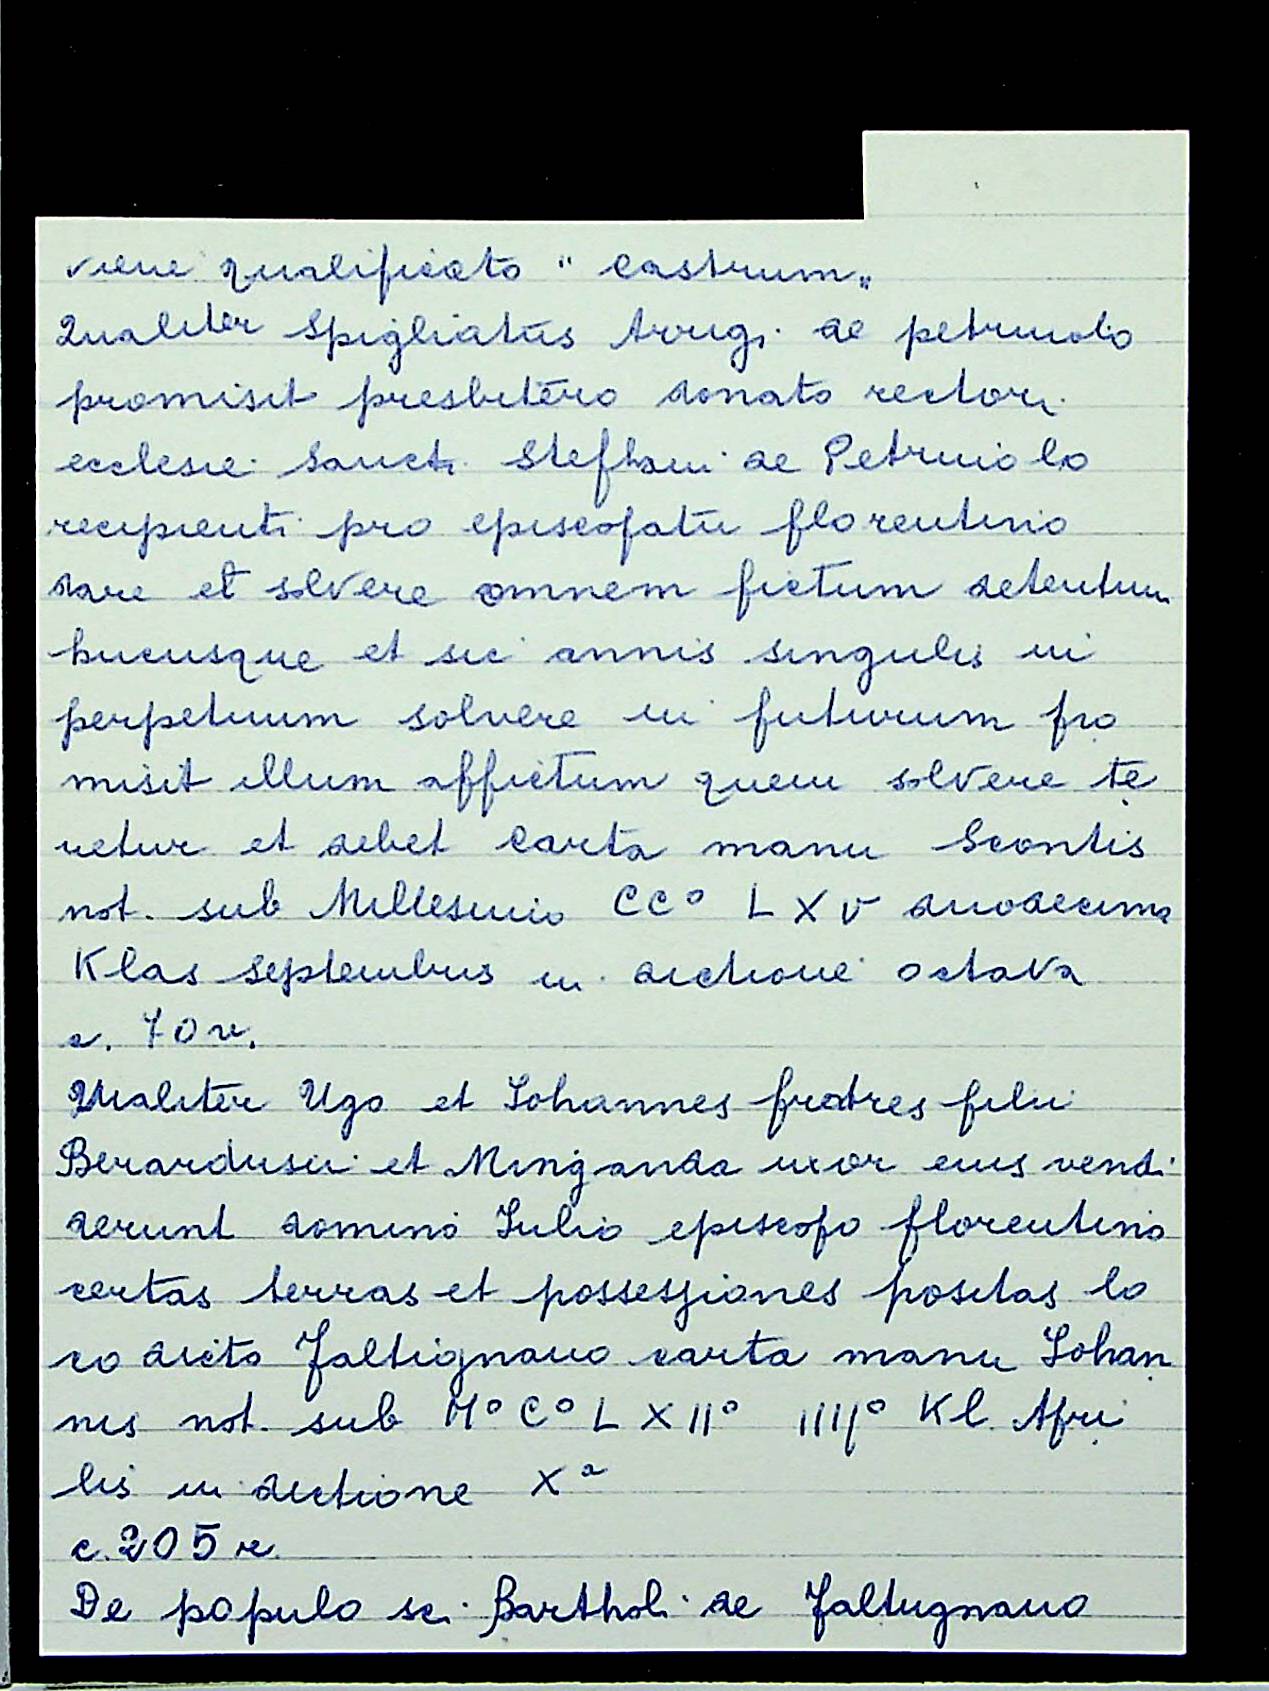 viene qualificato " castrum "
Qualiter Spigliatus Arrigi de petruiolo
promisit presbitero donato rectori
ecclesie Sancti Stefhani de Petruiolo
recipienti pro episcopatu florentino
dare et solvere omnem fictum detentum
hucusque et sic annis singulis in
perpetuum solvere in futurum pro
misit illum affictum quem solvere te
netur et debet Carta manu Scontis
not. sub Millesimo CC° L X V duodecima
Klas septembris in dictione octava
c. 70 v.
Qualiter Ugo et Iohannes fratres filii
Berarduscii et Minganda uxor eius vendi
derunt domino Iulio episcopo florentino
certas terras et possessiones positas lo
co dicto Faltignano carta manu Iohan
nis not. sub M° C° L X II° IIII° Kl. Apri
lis in dictione X a
c. 205 r.
De populo sci. Barthol. de Faltugnano